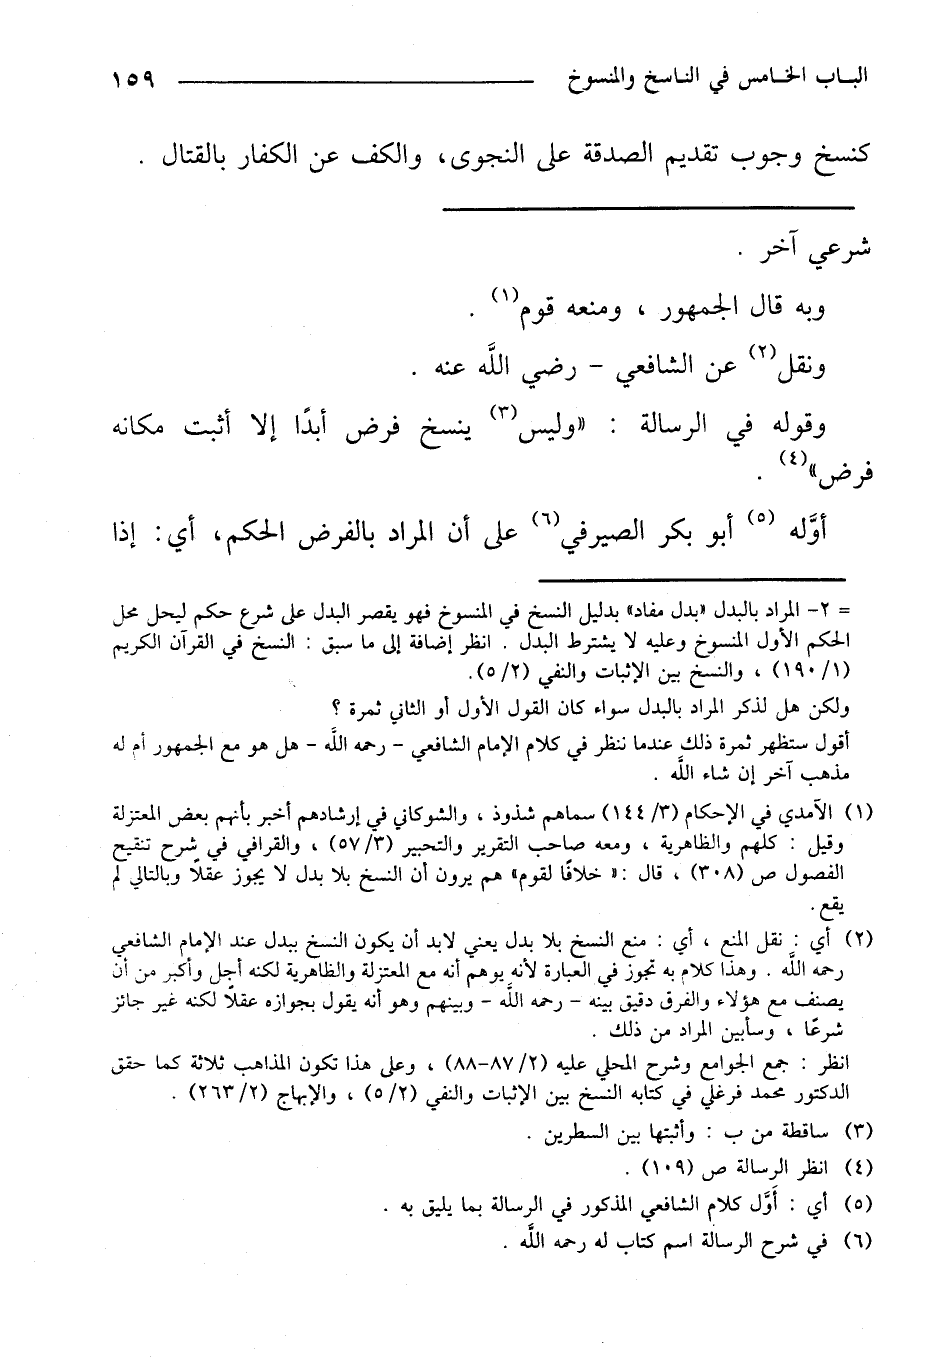 البـاب الخـامس في النـاسخ والمنسوخ ١٥٩
كنسخ وجوب تقديم الصدقة على النجوى، والكف عن الكفار بالقتال .
شرعي آخر .
وبه قال الجمهور ، ومنعه قوم(١) .
ونقل(٢) عن الشافعي – رضي اللَّه عنه .
وقوله في الرسالة : «وليس(٣) ينسخ فرض أبدًا إلا أثبت مكانه
فرض»(٤) .
أوَّله (٥) أبو بكر الصيرفي(٦) على أن المراد بالفرض الحكم، أي: إذا
= ٢- المراد بالبدل «بدل مفاد» بدليل النسخ في المنسوخ فهو يقصر البدل على شرع حكم ليحل محل
الحكم الأول المنسوخ وعليه لا يشترط البدل . انظر إضافة إلى ما سبق : النسخ في القرآن الكريم
(١/ ١٩٠) ، والنسخ بين الإثبات والنفي (٢/ ٥).
ولكن هل لذكر المراد بالبدل سواء كان القول الأول أو الثاني ثمرة ؟
أقول ستظهر ثمرة ذلك عندما ننظر في كلام الإمام الشافعي – رحمه اللَّه – هل هو مع الجمهور أم له
مذهب آخر إن شاء اللَّه .
(١) الآمدي في الإحكام (٣/ ١٤٤) سماهم شذوذ ، والشوكاني في إرشادهم أخبر بأنهم بعض المعتزلة
وقيل : كلهم والظاهرية ، ومعه صاحب التقرير والتحبير (٣/ ٥٧) ، والقرافي في شرح تنقيح
الفصول ص (٣٠٨) ، قال :« خلافًا لقوم» هم يرون أن النسخ بلا بدل لا يجوز عقلاً وبالتالي لم
يقع.
(٢) أي : نقل المنع ، أي : منع النسخ بلا بدل يعني لابد أن يكون النسخ ببدل عند الإمام الشافعي
رحمه اللَّه . وهذا كلام به تجوز في العبارة لأنه يوهم أنه مع المعتزلة والظاهرية لكنه أجل وأكبر من أن
يصنف مع هؤلاء والفرق دقيق بينه – رحمه اللَّه – وبينهم وهو أنه يقول بجوازه عقلاً لكنه غير جائز
شرعًا ، وسأبين المراد من ذلك .
انظر : جمع الجوامع وشرح المحلي عليه (٢/ ٨٧-٨٨) ، وعلى هذا تكون المذاهب ثلاثة كما حقق
الدكتور محمد فرغلي في كتابه النسخ بين الإثبات والنفي (٢/ ٥) ، والإبهاج (٢/ ٢٦٣) .
(٣) ساقطة من ب : وأثبتها بين السطرين .
(٤) انظر الرسالة ص (١٠٩) .
(٥) أي : أَوَّل كلام الشافعي المذكور في الرسالة بما يليق به .
(٦) في شرح الرسالة اسم كتاب له رحمه اللَّه .